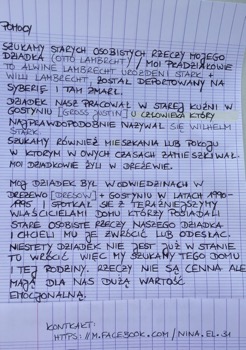 POMOCY
SZUKAMY STARYCH OSOBISTYCH RZECZY MOJEGO
DZIADKA (OTTO LAMBRECHT) / MOI PRADZIADKOWIE
TO ALWINE LAMBRECHT URODZENI STARK +
WILLI LAMBRECHT, ZOSTAŁ DEPORTOWANY NA
SYBERIĘ I TAM ZMARŁ.
DZIADEK NASZ PRACOWAŁ W STAREJ KUŹNI W
GOSTYNIU [GROSS JUSTIN] U CZŁOWIEKA KTÓRY
NAJPRAWDOPODOBNIE NAZYWAŁ SIĘ WILHELM
STARK.
SZUKAMY RÓWNIEŻ MIESZKANIA LUB POKOJU
W KTÓRYM W OWYCH CZASACH ZAMIESZKIWAŁ.
MOI DZIADKOWIE ŻYLI W DREŻEWIE.
MÓJ DZIADEK BYŁ W ODWIEDZINACH W
DREŻEWO [DRESOW] + GOSTYNIU W LATACH 1990-
1995 I SPOTKAŁ SIĘ Z TERAŹNIEJSZYMI
WŁAŚCICIELAMI DOMU KTÓRZY POSIADALI
STARE OSOBISTE RZECZY NASZEGO DZIADKA
I CHCIELI MU JE ZWRÓCIĆ LUB ODESŁAĆ.
NIESTETY DZIADEK NIE JEST JUŻ W STANIE
TU WRÓCIĆ WIĘC MY SZUKAMY TEGO DOMU
I TEJ RODZINY. RZECZY NIE SĄ CENNA ALE
MAJĄ DLA NAS DUŻĄ WARTOŚĆ
EMOCJONALNĄ.
KONTAKT:
HTTPS://M.FACEBOOK.COM/NINA.EL.31